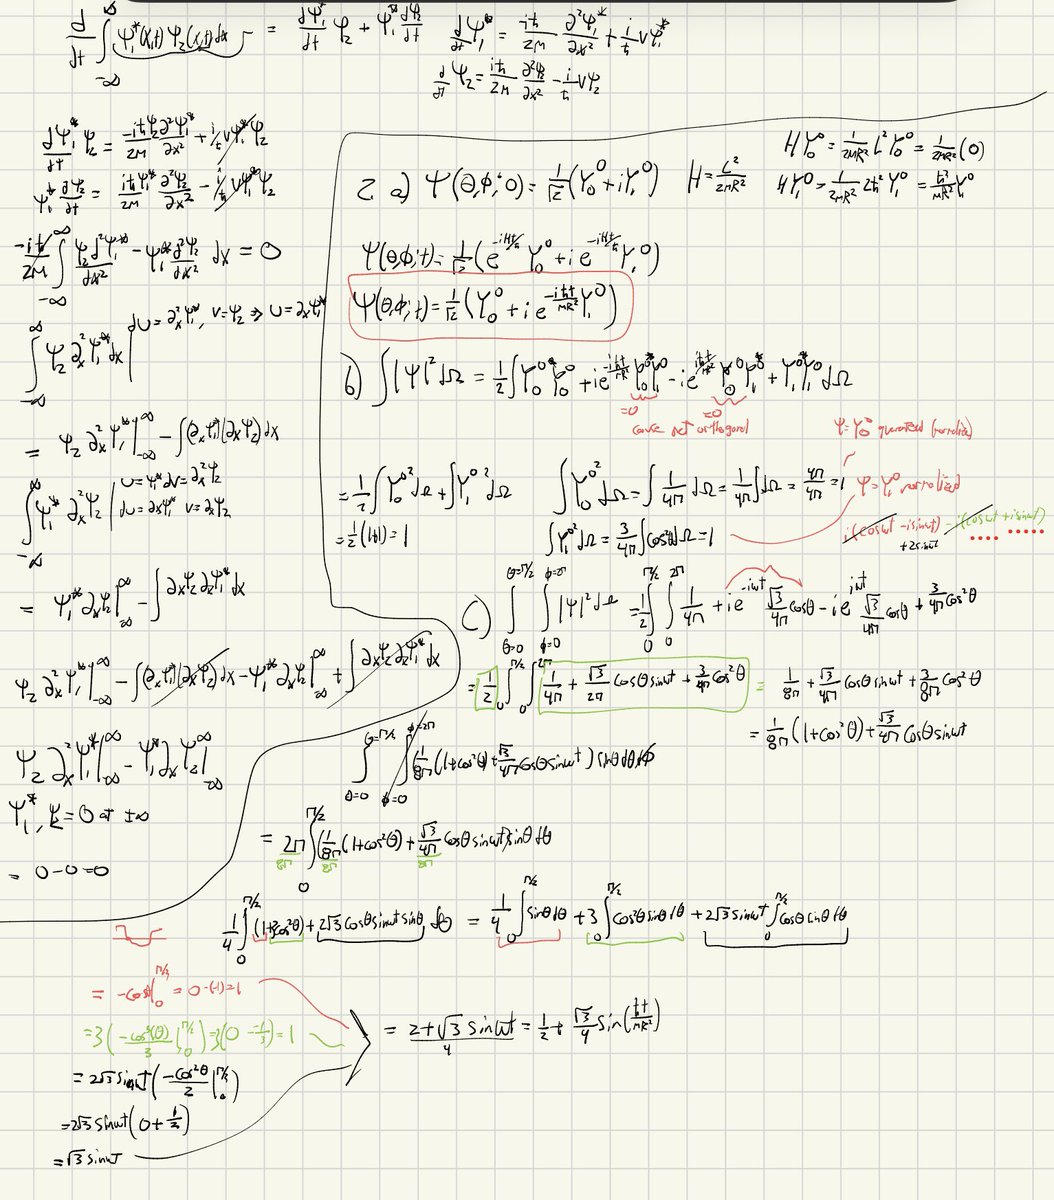 d/dt ∫_{-∞}^{∞} Ψ₁*(x,t) Ψ₂(x,t) dx = dΨ₁*/dt Ψ₂ + Ψ₁* dΨ₂/dt
d/dt Ψ₁* = -iħ/2M ∂²Ψ₁*/∂x² + i/ħ VΨ₁*
d/dt Ψ₂ = iħ/2M ∂²Ψ₂/∂x² - i/ħ VΨ₂
dΨ₁*/dt Ψ₂ = -iħΨ₂/2M ∂²Ψ₁*/∂x² + i/ħ VΨ₁*Ψ₂
Ψ₁* ∂Ψ₂/∂t = iħΨ₁*/2M ∂²Ψ₂/∂x² - i/ħ VΨ₁*Ψ₂
-iħ/2M ∫_{-∞}^{∞} Ψ₂ d²Ψ₁*/dx² - Ψ₁* d²Ψ₂/dx² dx = 0
∫_{-∞}^{∞} Ψ₂ ∂ₓ²Ψ₁* dx | du = ∂ₓ²Ψ₁*, v = Ψ₂ ⇒ u = ∂ₓΨ₁*
= Ψ₂ ∂ₓ²Ψ₁* |_{-∞}^{∞} - ∫(∂ₓΨ₁*)(∂ₓΨ₂) dx
∫_{-∞}^{∞} Ψ₁* ∂ₓ²Ψ₂ | u = Ψ₁* dv = ∂ₓ²Ψ₂
du = ∂ₓΨ₁* v = ∂ₓΨ₂
= Ψ₁* ∂ₓΨ₂ |_{-∞}^{∞} - ∫ ∂ₓΨ₂ ∂ₓΨ₁* dx
Ψ₂ ∂ₓ²Ψ₁* |_{-∞}^{∞} - ∫(∂ₓΨ₁*)(∂ₓΨ₂) dx - Ψ₁* ∂ₓΨ₂ |_{-∞}^{∞} + ∫ ∂ₓΨ₂ ∂ₓΨ₁* dx
Ψ₂ ∂ₓ²Ψ₁* |_{-∞}^{∞} - Ψ₁* ∂ₓΨ₂ |_{-∞}^{∞}
Ψ₁*, Ψ₂ = 0 at ±∞
= 0 - 0 = 0
2. a) Ψ(θ,φ;0) = 1/√2 (Y₀⁰ + iY₁⁰) H = L²/2MR²
HY₀⁰ = 1/2MR² L²Y₀⁰ = 1/2MR² (0)
HY₁⁰ = 1/2MR² 2ħ² Y₁⁰ = ħ²/MR² Y₁⁰
Ψ(θ,φ;t) = 1/√2 (e^{-iHt/ħ} Y₀⁰ + i e^{-iHt/ħ} Y₁⁰)
Ψ(θ,φ;t) = 1/√2 (Y₀⁰ + i e^{-iħt/MR²} Y₁⁰)
b) ∫|Ψ|² dΩ = 1/2 ∫ Y₀⁰* Y₀⁰ + i e^{-iħt/MR²} Y₀⁰* Y₁⁰ - i e^{iħt/MR²} Y₀⁰ Y₁⁰* + Y₁⁰* Y₁⁰ dΩ
=0 =0
orthogonal
Ψ = Y₀⁰
= 1/2 ∫ Y₀⁰² dΩ + ∫ Y₁⁰² dΩ
∫ Y₀⁰² dΩ = ∫ 1/4π dΩ = 1/4π ∫ dΩ = 4π/4π = 1
Ψ = Y₁⁰ normalized
= 1/2 (1+1) = 1
∫ Y₁⁰² dΩ = 3/4π ∫ cos²θ dΩ = 1
i(cosωt - isinωt) - i(cosωt + isinωt)
+2sinωt
c) ∫_{θ=0}^{θ=π/2} ∫_{φ=0}^{φ=π} |Ψ|² dΩ = 1/2 ∫_0^{π/2} ∫_0^{2π} 1/4π + i e^{-iωt} √3/4π cosθ - i e^{iωt} √3/4π cosθ + 3/4π cos²θ
= 1/2 ∫_0^{π/2} ∫_0^{2π} 1/4π + √3/2π cosθ sinωt + 3/4π cos²θ = 1/8π + √3/4π cosθ sinωt + 3/8π cos²θ
= 1/8π (1+cos²θ) + √3/4π cosθ sinωt
∫_{θ=0}^{θ=π/2} ∫_{φ=0}^{φ=2π} (1/8π (1+cos²θ) + √3/4π cosθ sinωt) sinθ dθ dφ
= 2π ∫_0^{π/2} (1/8π (1+cos²θ) + √3/4π cosθ sinωt) sinθ dθ
8π 8π 8π
1/4 ∫_0^{π/2} (1+3cos²θ) + 2√3 cosθ sinωt sinθ dθ = 1/4 ∫_0^{π/2} sinθ dθ + 3 ∫_0^{π/2} cos²θ sinθ dθ + 2√3 sinωt ∫_0^{π/2} cosθ sinθ dθ
= -cosθ |_0^{π/2} = 0-(-1) = 1
= 3(-cos³(θ)/3 |_0^{π/2}) = 3(0 - -1/3) = 1
= 2√3 sinωt (-cos²θ/2 |_0^{π/2})
= 2√3 sinωt (0 + 1/2)
= √3 sinωt
= 2+√3 sinωt / 4 = 1/2 + √3/4 sin(ħt/MR²)